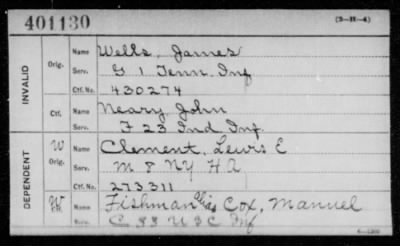 401130 (3-H-4)
INVALID
Orig. Name Wells, James
Serv. G 1 Tenn. Inf
Ctf. No. 430274
Ctf. Name Neary John
Serv. F 23 Ind Inf.
DEPENDENT
W Orig. Name Clement, Lewis E
Serv. M 8 NY H A
Ctf. No. 273311
W Ctf. Name Fishman alias Cox, Manuel
Serv. C 83 U S C Inf